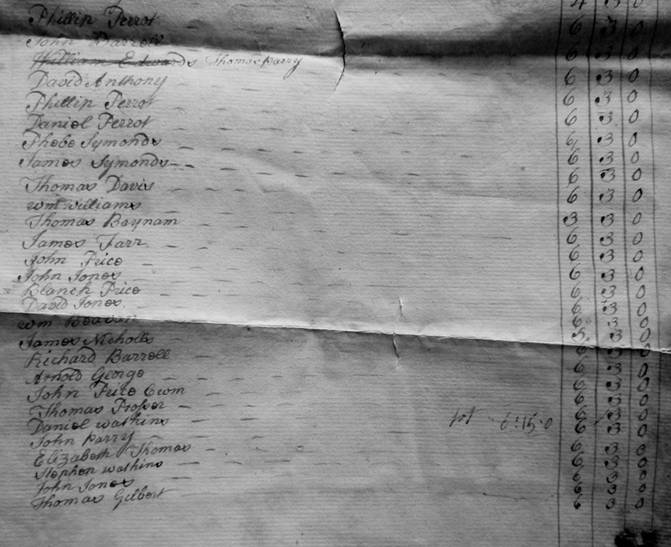 Phillip Perrot 6 3 0
John Barroll 6 3 0
William Edwards Thomas parry 6 3 0
David Anthony 6 3 0
Phillip Perrot 6 3 0
Daniel Perrot 6 3 0
Phebe Symonds 6 3 0
James Symonds 6 3 0
Thomas Davis 6 3 0
wm williams 6 3 0
Thomas Baynam 3 3 0
James Farr 6 3 0
John Price 6 3 0
John Jones 6 3 0
Blanch Price 6 3 0
David Jones 6 3 0
wm Beavan 3 0
James Nicholls 3 0
Richard Barroll 6 3 0
Arnold George 6 3 0
John Price Cwm 6 3 0
Thomas Prosser 6 3 0
Daniel watkins 6 3 0
John parry 6 3 0
Elizabeth Thomas 6 3 0
Stephen watkins 6 3 0
John Jones 6 3 0
Thomas Gilbert 6 3 0